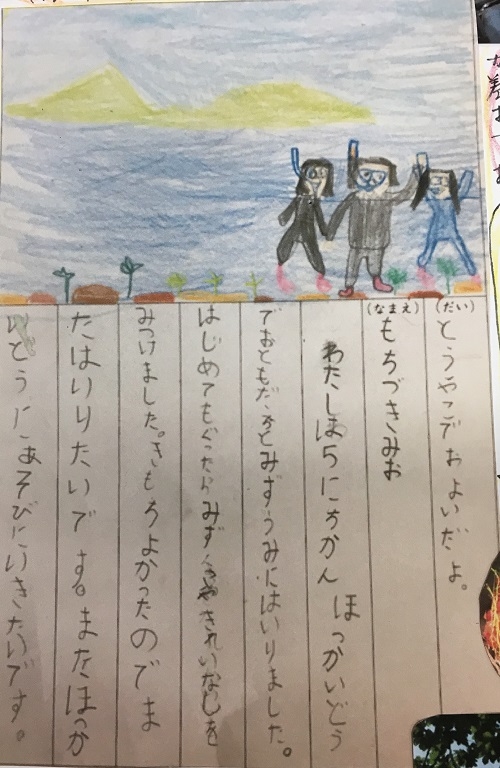 (だい)
とうやこでおよいだよ。
(なまえ)
もちづきみお
わたしは5にちかん ほっかいどう
でおともだちとみずうみにはいりました。
はじめてもぐったらみずくさやきれいないしを
みつけました。きもちよかったのでま
たはいりたいです。またほっか
いどうにあそびにいきたいです。